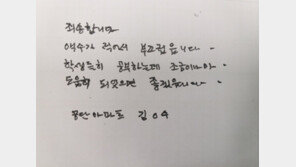 죄송합니다
액수가 적어서 부끄럽습니다
학생들이 공부하는데 조금이나마
도움이 되었으면 좋겠습니다
꿈단아파트 김ㅇㅅ